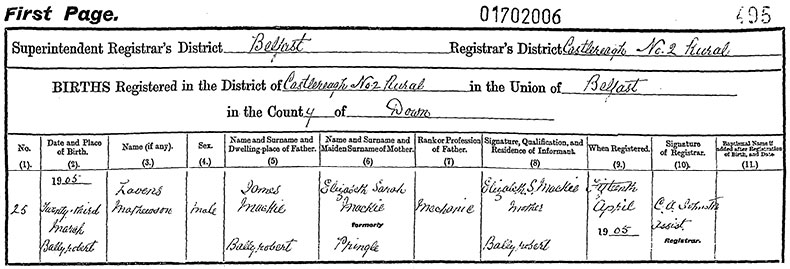 First Page.
01702006
495
Superintendent Registrar's District Belfast
Registrar's District Castlereagh No. 2 Rural
BIRTHS Registered in the District of Castlereagh No 2 Rural in the Union of Belfast
in the County of Down
No. (1).
Date and Place of Birth. (2).
Name (if any). (3.)
Sex. (4.)
Name and Surname and Dwelling-place of Father. (5)
Name and Surname and Maiden Surname of Mother. (6)
Rank or Profession of Father. (7)
Signature, Qualification, and Residence of Informant. (8)
When Registered. (9.)
Signature of Registrar. (10).
Baptismal Name if added after Registration of Birth, and Date. (11.)
25
1905
Twenty-third
Marsh
Ballyrobert
Lavens
Mathewson
Male
James
Mackie
Ballyrobert
Elizabeth Sarah
Mackie
formerly
Pringle
Mechanic
Elizabeth S. Mackie
Mother
Ballyrobert
Fifteenth
April
1905
C. A. Johnston
Assist.
Registrar.